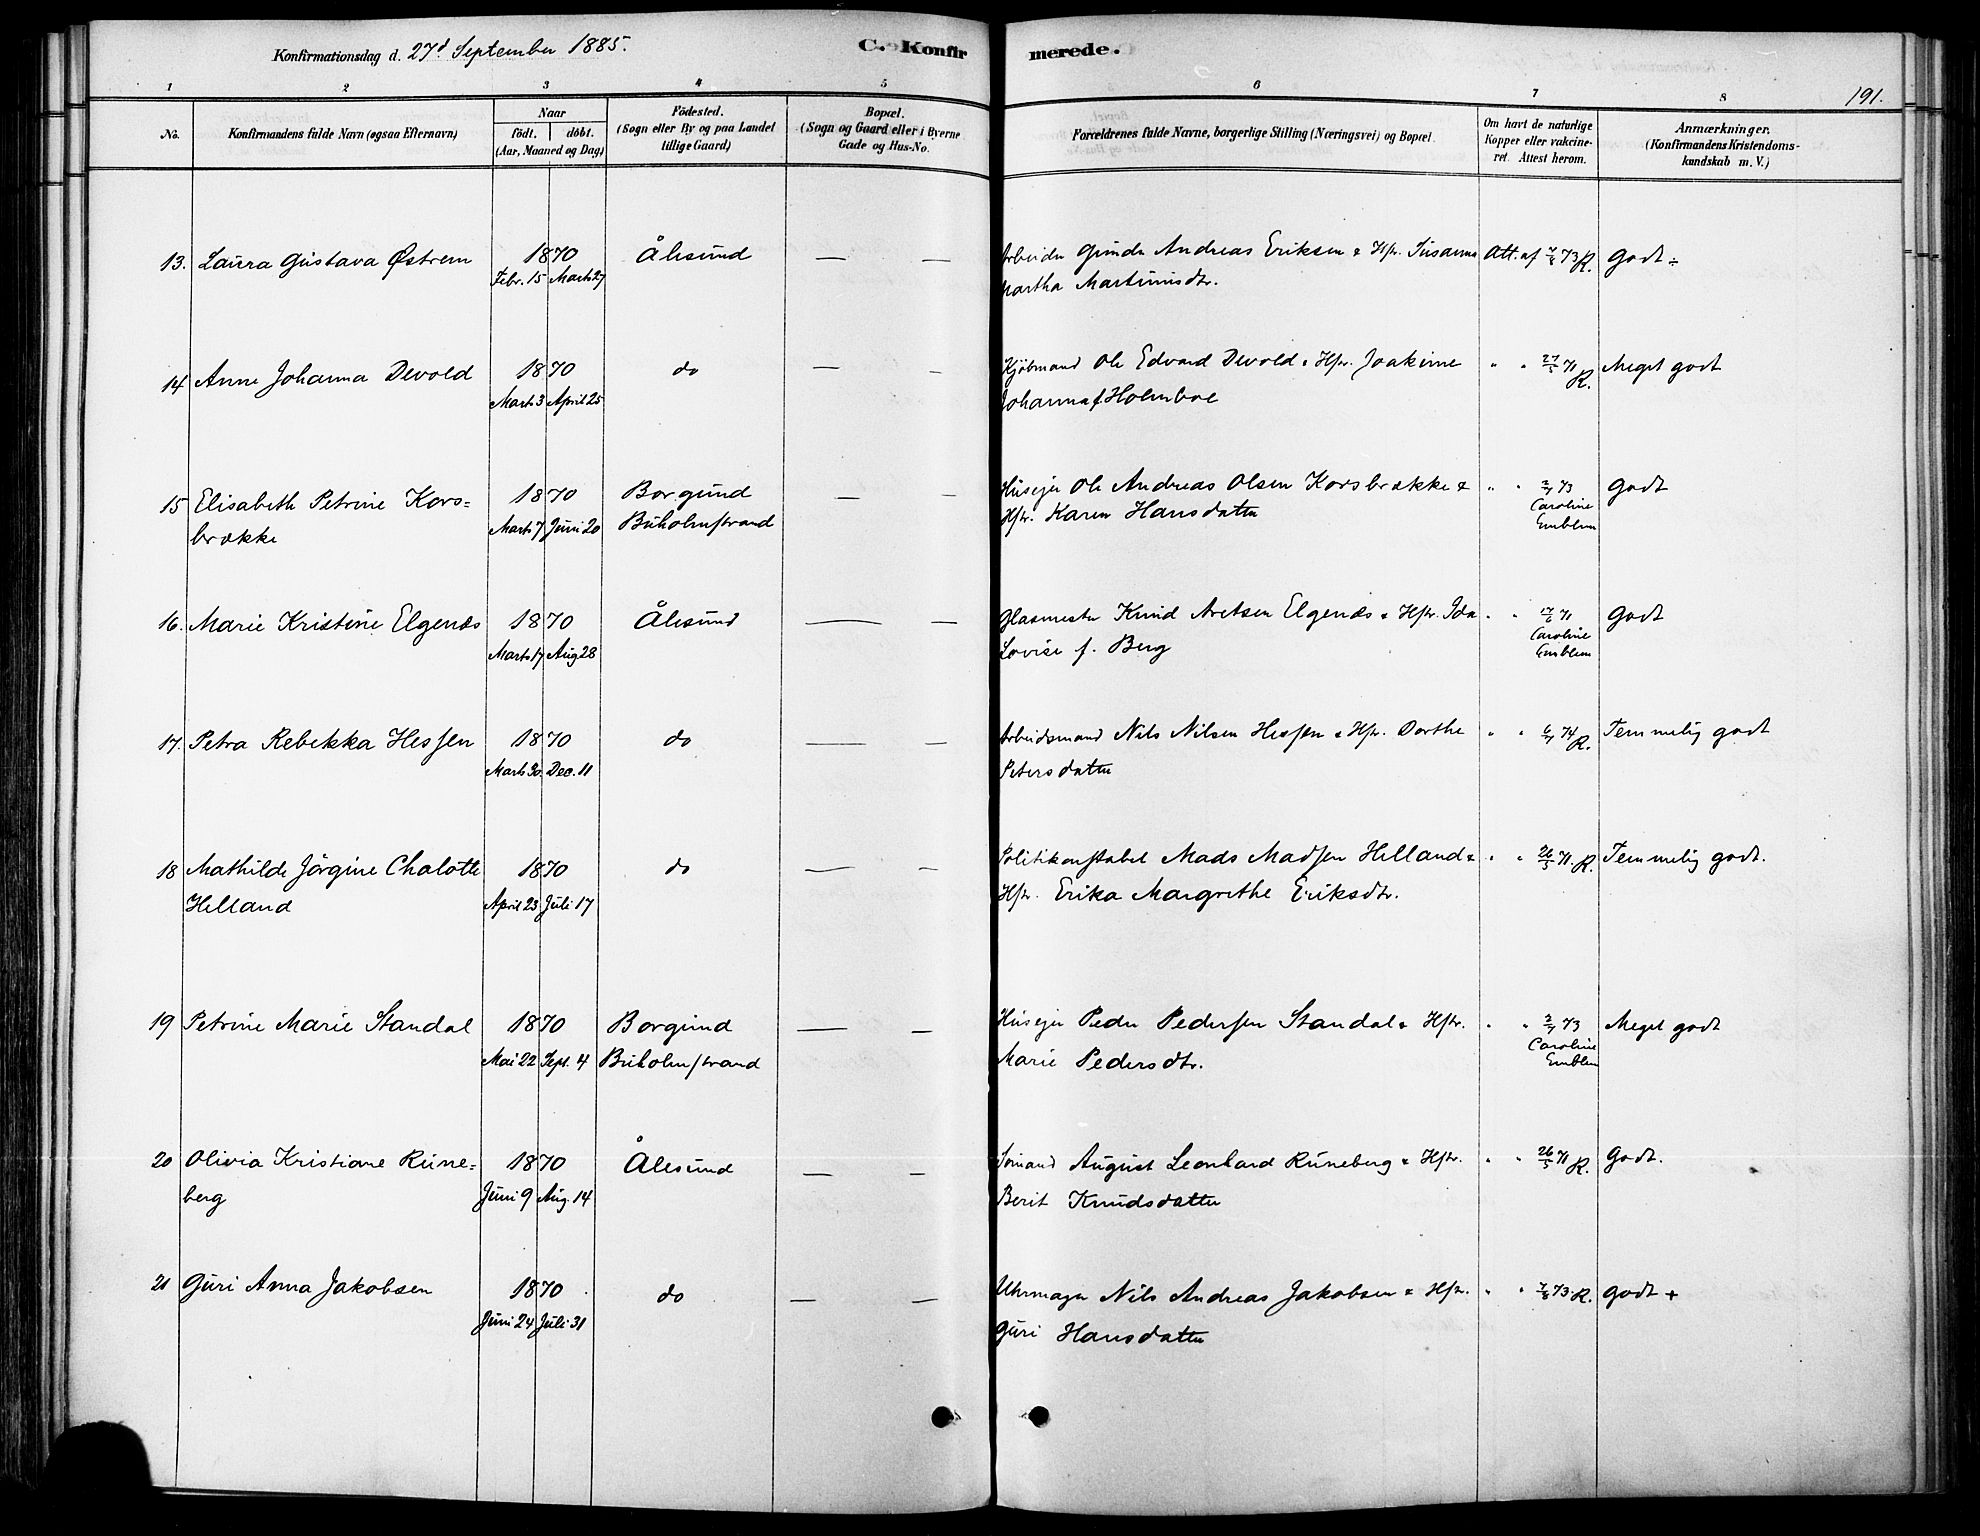 Konfirmationsdag d. 27d September 1885.
C. Konfirmerede.
191.
1 2 3 4 5 6 7 8
No.
Konfirmandens fulde Navn (ogsaa Efternavn)
Naar
födt. | döbt.
(Aar, Maaned og Dag)
Födested.
(Sogn eller By og paa Landet
tillige Gaard)
Bopæl.
(Sogn og Gaard eller i Byerne
Gade og Hus-No.
Forældrenes fulde Navne, borgerlige Stilling (Næringsvei) og Bopæl.
Om havt de naturlige
Kopper eller vakcine-
ret. Attest herom.
Anmærkninger.
(Konfirmandens Kristendoms-
kundskab m. V.)
13. Laura Gustava Østrem 1870 Ålesund — — Arbeider Gunder Andreas Eriksen & Hstr. Susanna Att. af 7/8 73 R. Godt ÷
Febr. 15 Marts 27 Martha Martinusdtr.
14 Anne Johanna Devold 1870 do — — Kjöbmand Ole Edvard Devold & Hstr. Joakime " " 27/5 71 R. Meget godt
Marts 3 April 25 Johanna f. Holmboe
15 Elisabeth Petrine Kors= 1870 Borgund — — Huseier Ole Andreas Olsen Korsbrække & " " 2/7 73 Godt
brække Marts 7 Juni 20 Buholmstrand Hstr. Karen Hansdatter Caroline
Emblem
16. Marie Kristine Elgenæs 1870 Ålesund — — Glasmester Knud Aretsen Elgenæs & Hstr. Ida " " 17/6 71 Godt
Marts 17 Aug 28 Lovise f. Berg Caroline
Emblem
17. Petra Rebekka Hessen 1870 do — — Arbeidsmand Nils Nilsen Hessen & Hstr. Dorthe " " 6/7 74 R. Temmelig godt
Marts 30. Dec. 11 Petersdatter
18 Mathilde Jörgine Chalotte 1870 do — — Politikonstabel Mads Madsen Helland & " " 26/5 71. R. Temmelig godt.
Helland April 23 Juli 17 Hstr. Erika Margrethe Eriksdtr.
19 Petrine Marie Standal 1870 Borgund — — Huseier Peder Pedersen Standal & Hstr. " " 2/7 73 Meget godt
Mai 22 Sept. 4 Buholmstrand Marie Pedersdtr. Caroline
Emblem
20 Olivia Kristiane Rune= 1870 Ålesund — — Sömand August Leonhard Runeberg & Hstr. " " 26/5 71 R. Godt.
berg Juni 9 Aug. 14 Berit Knudsdatter
21 Guri Anna Jakobsen 1870 do — — Uhrmager Nils Andreas Jakobsen & Hstr. " " 7/8 73 R. Godt +
Juni 24 Juli 31 Guri Hansdatter